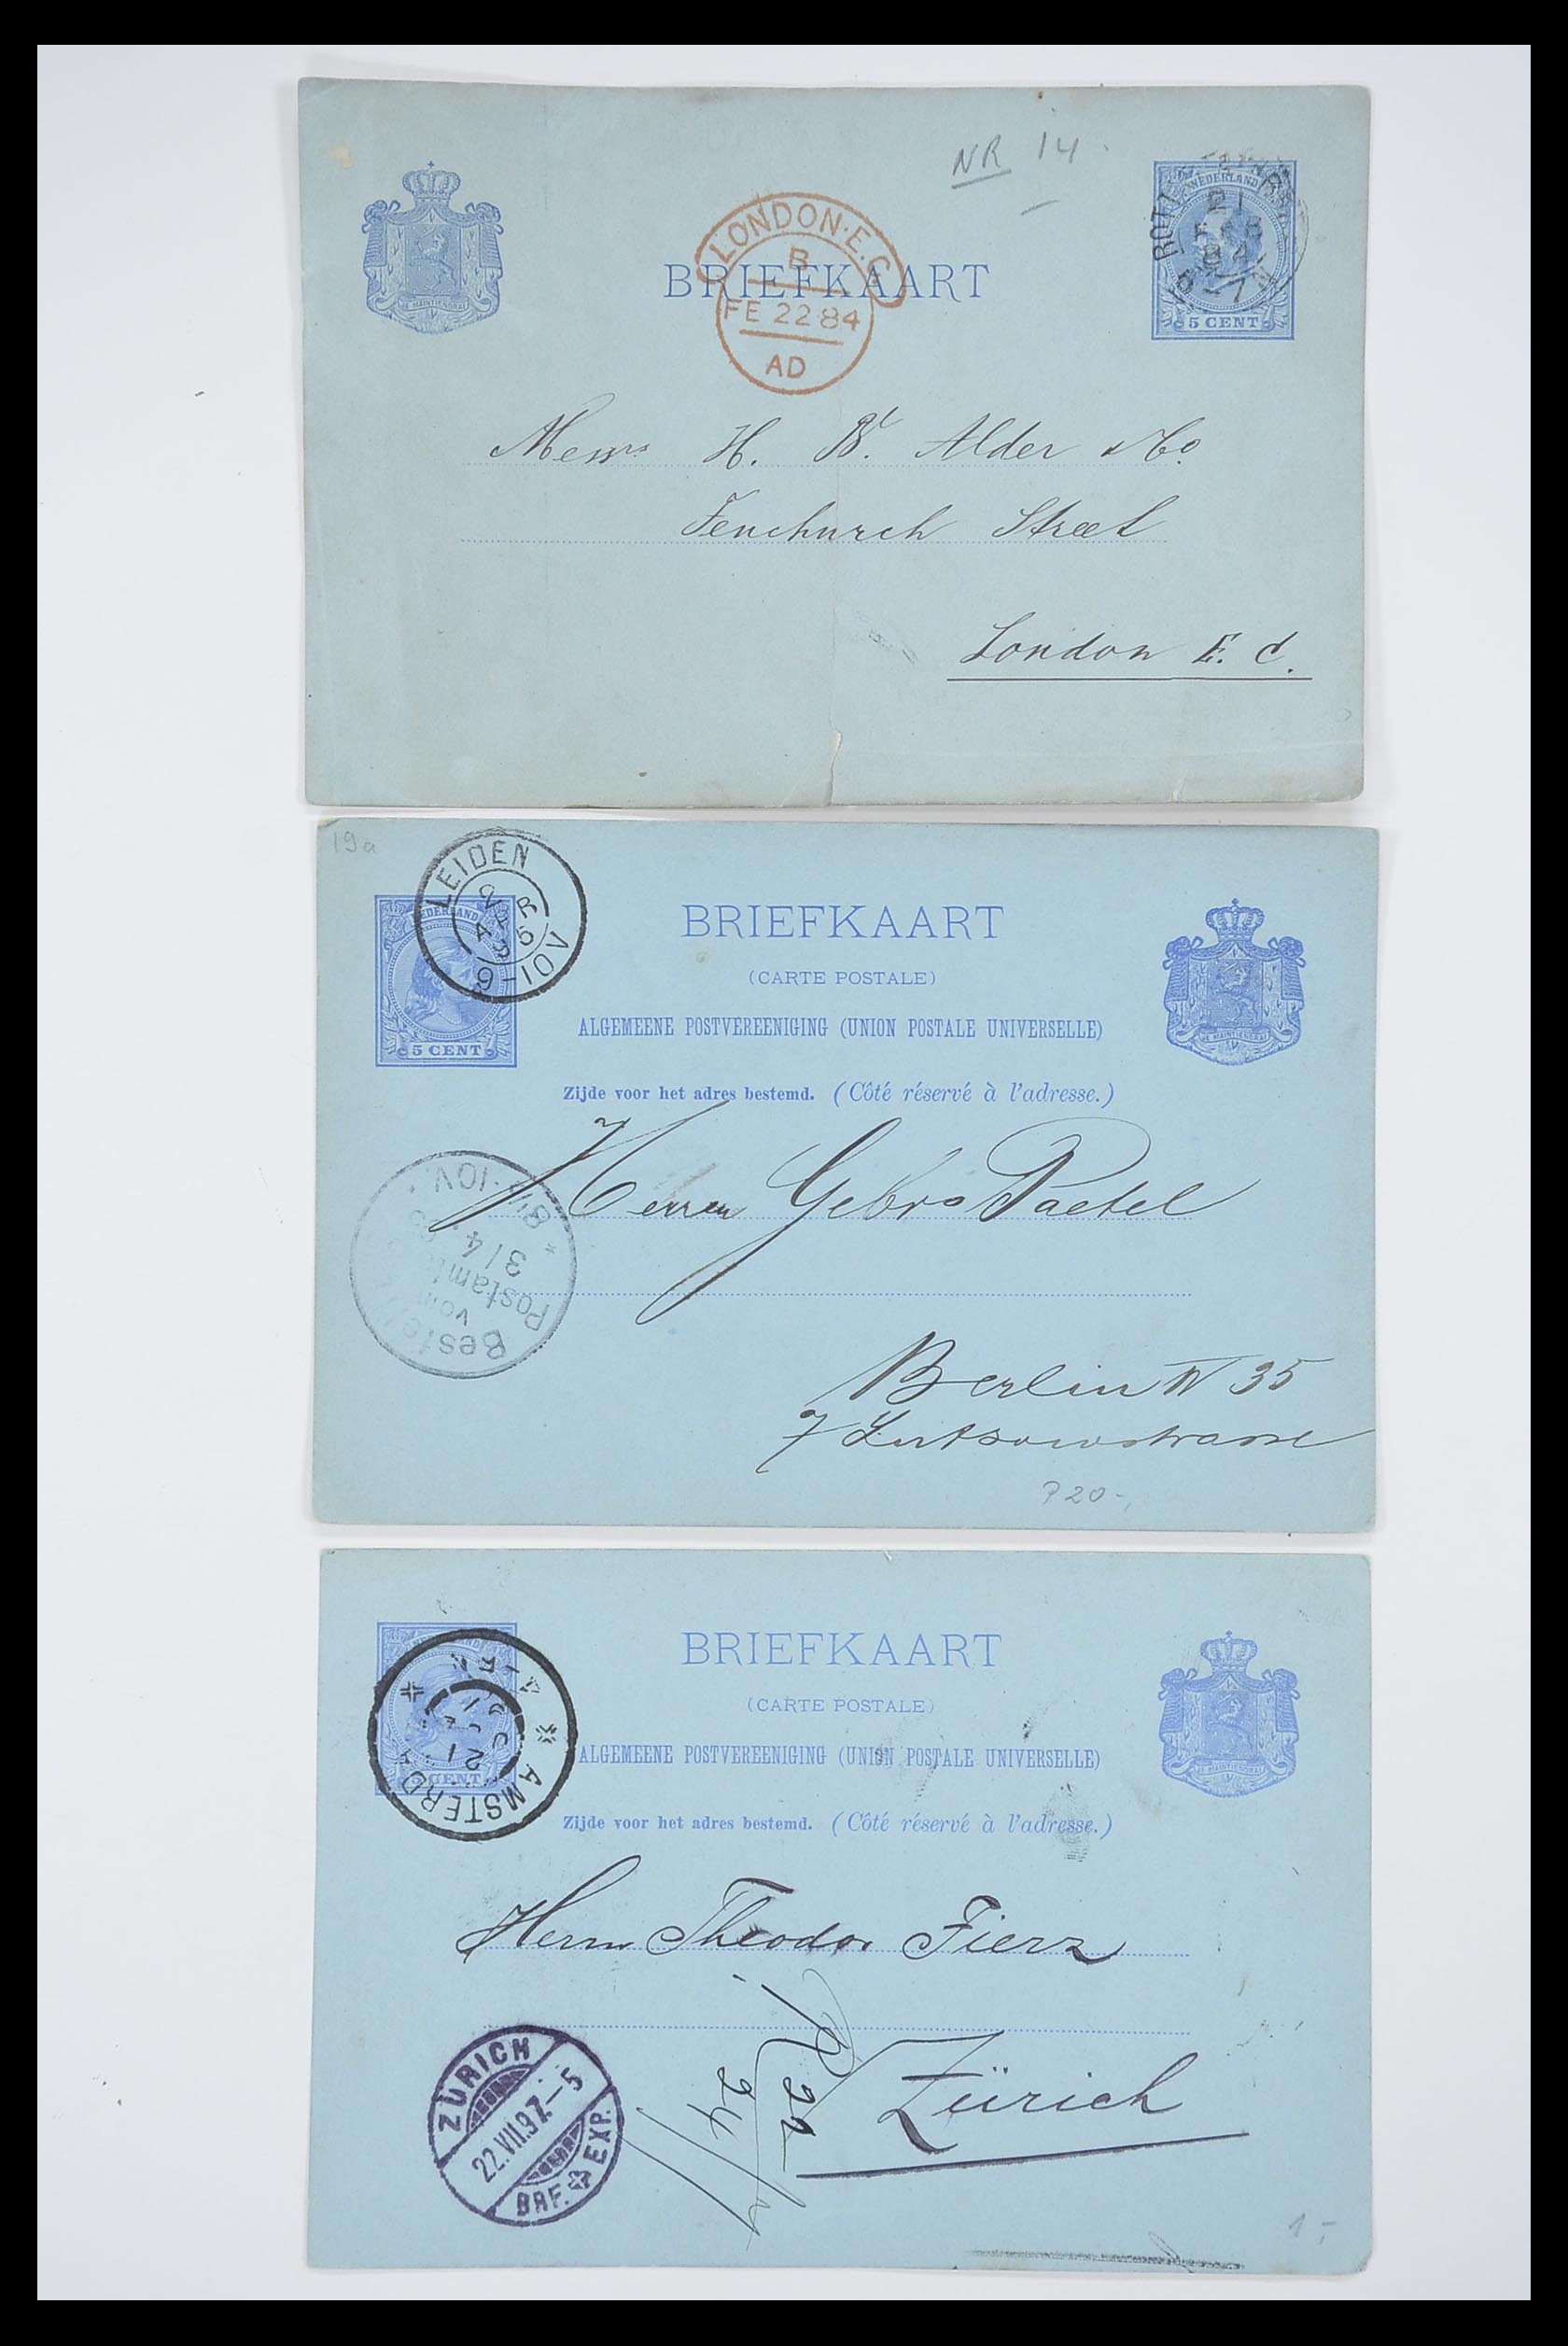 NR 14
NEDERLAND
21
FEB
84
5 CENT
LONDON·E.C
B
FE 22 84
AD
BRIEFKAART
JE MAINTIENDRAI
Messrs H. Wt. Alder & Co.
Fenchurch Street
London E. C.
19a
LEIDEN
2
APR
95
9-10V
NEDERLAND
5 CENT
BRIEFKAART
(CARTE POSTALE)
ALGEMEENE POSTVEREENIGING (UNION POSTALE UNIVERSELLE)
JE MAINTIENDRAI
Zijde voor het adres bestemd. (Côté réservé à l'adresse.)
Bestellt
vom
Postamte
3/4
8½-10V.
Herren Gebrs Paetel
Berlin W 35
7 Lutzowstrasse
P20-,
BRIEFKAART
(CARTE POSTALE)
AMSTERDAM
21
CENT
ALGEMEENE POSTVEREENIGING (UNION POSTALE UNIVERSELLE)
JE MAINTIENDRAI
Zijde voor het adres bestemd. (Côté réservé à l'adresse.)
Herrn Theodor Fierz
Zürich
R 22
24/7
ZÜRICH
22.VII.97.-5
BRF. EXP.
1-,